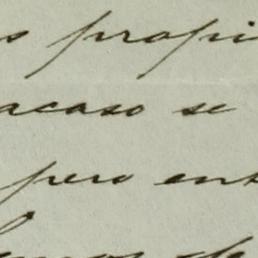 s propi
acaso se
pero ent